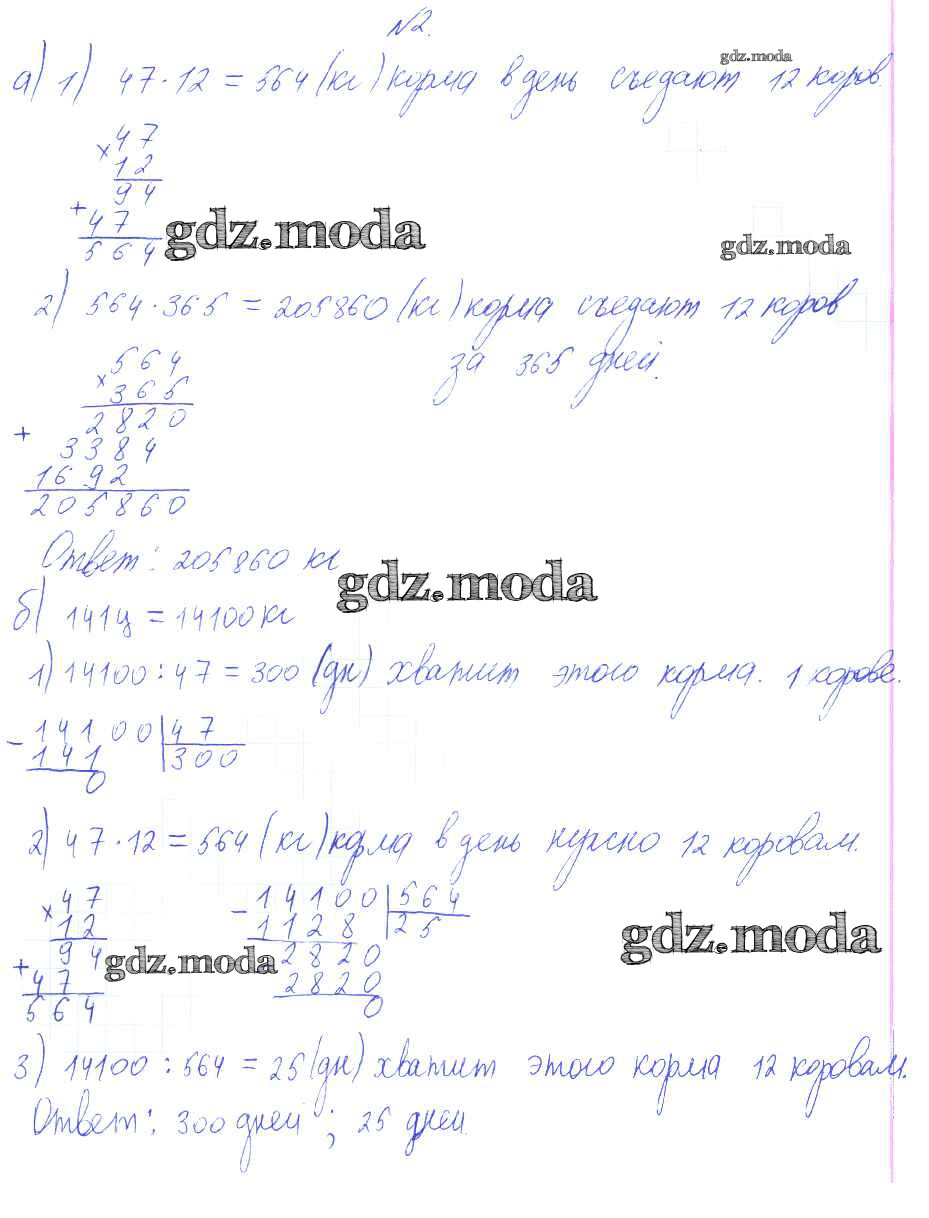 №2.
gdz.moda
а) 1) 47 · 12 = 564 (кг) корма в день съедают 12 коров.
× 47
12
94
+ 47
564
gdz.moda
gdz.moda
2) 564 · 365 = 205860 (кг) корма съедают 12 коров
за 365 дней.
× 564
365
2820
+ 3384
1692
205860
Ответ: 205860 кг
gdz.moda
б) 141ц = 14100кг
1) 14100 : 47 = 300 (дн) хватит этого корма. 1 корове.
- 14100 | 47
141 | 300
0
2) 47 · 12 = 564 (кг) корма в день нужно 12 коровам.
× 47
12
94
+ 47
564
- 14100 | 564
1128 | 25
2820
2820
0
gdz.moda
gdz.moda
3) 14100 : 564 = 25 (дн) хватит этого корма 12 коровам.
Ответ: 300 дней ; 25 дней.